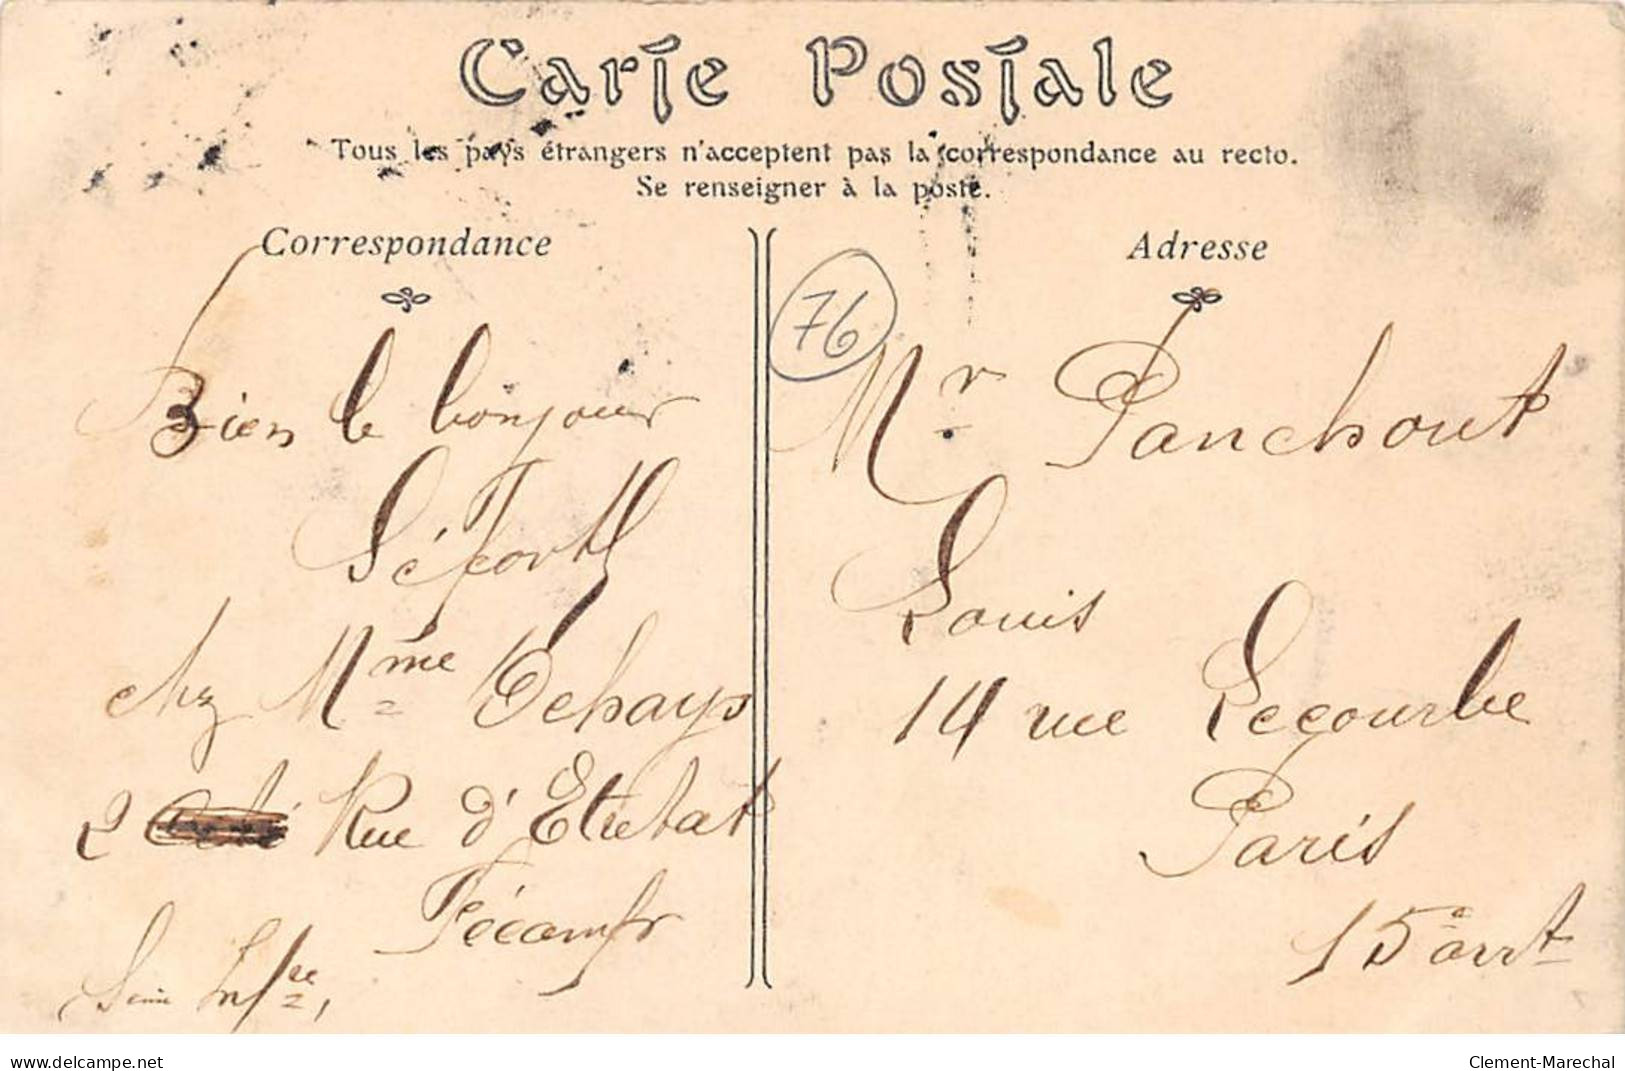 Carte Postale
Tous les pays étrangers n'acceptent pas la correspondance au recto.
Se renseigner à la poste.
Correspondance
Bien le bonjour
chez Mme Dehays
2 Rue d'Etretat
Fécamp
Seine Infre,
Adresse
76
Mr Panchout
Louis
14 rue Lecourbe
Paris
15e arrt
delcampe.net
Clement-Marechal